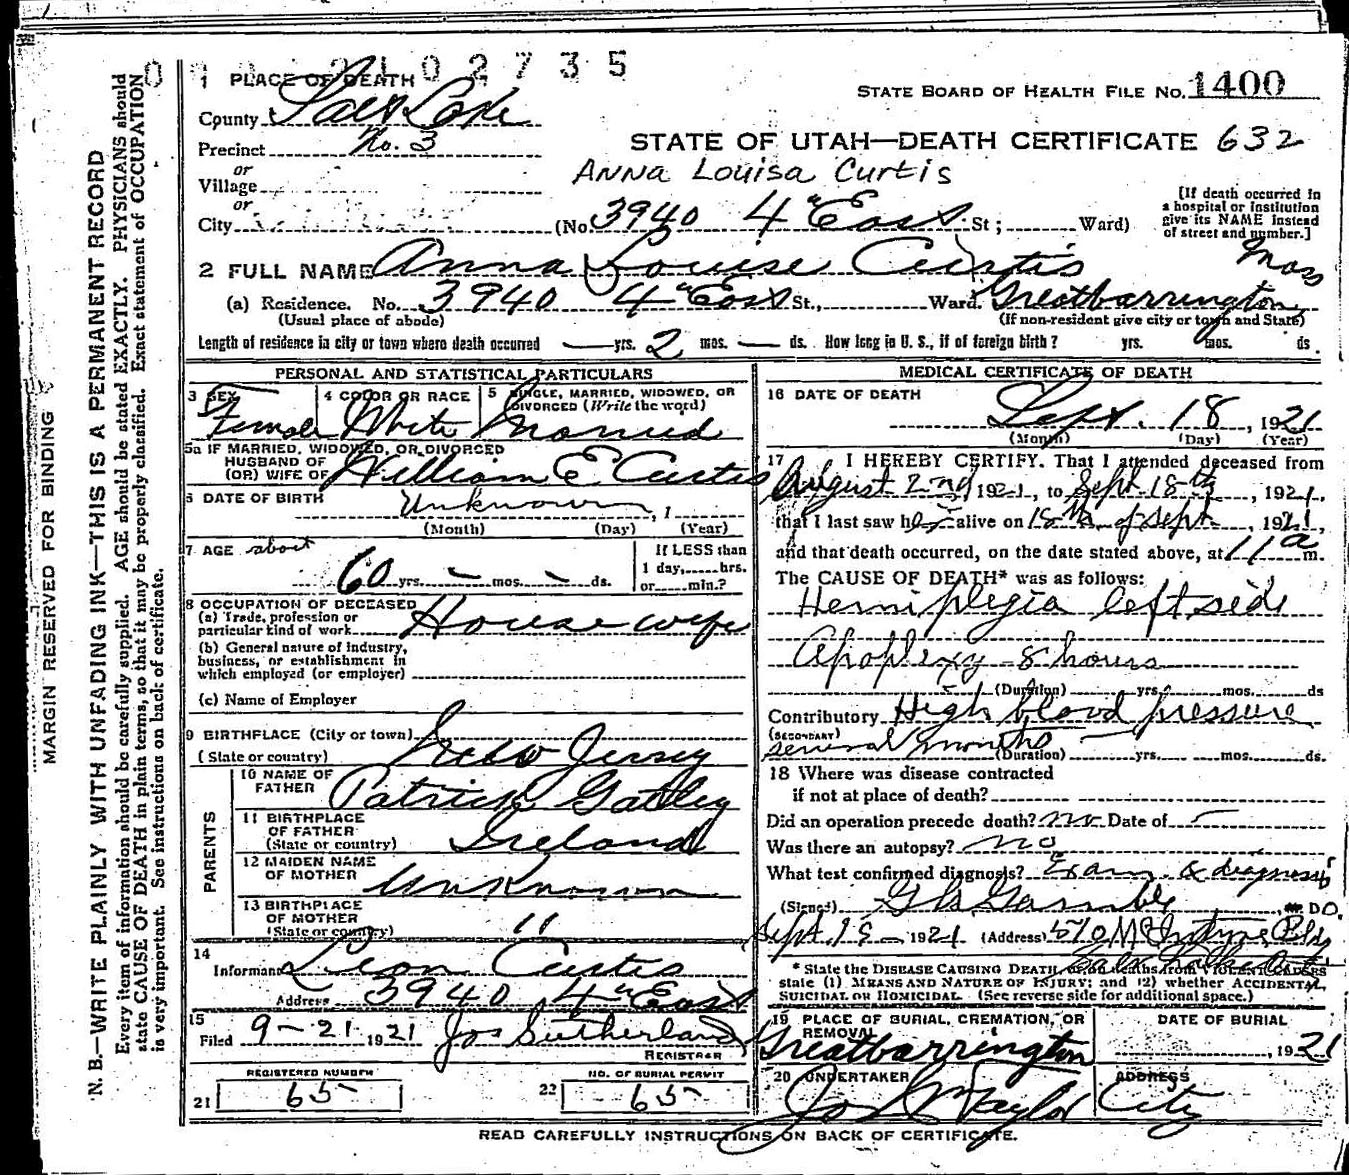 0 2 1 0 2 7 3 5
1 PLACE OF DEATH
STATE BOARD OF HEALTH FILE NO. 1400
County Salt Lake
Precinct No. 3
STATE OF UTAH—DEATH CERTIFICATE 632
or
Village
Anna Louisa Curtis
or
City (No. 3940 4" East St; Ward)
[If death occurred in a hospital or institution give its NAME instead of street and number.]
2 FULL NAME Anna Louise Curtis
Mass
(a) Residence. No. 3940 4" East St., Ward. Greatbarrington
(Usual place of abode) (If non-resident give city or town and State)
Length of residence in city or town where death occurred — yrs. 2 mos. — ds. How long in U. S., if of foreign birth? yrs. mos. ds.
PERSONAL AND STATISTICAL PARTICULARS
3 SEX Female
4 COLOR OR RACE White
5 SINGLE, MARRIED, WIDOWED, OR DIVORCED (Write the word) Married
5a IF MARRIED, WIDOWED, OR DIVORCED
HUSBAND OF
(OR) WIFE OF William E Curtis
6 DATE OF BIRTH Unknown, 1
(Month) (Day) (Year)
7 AGE about 60 yrs. – mos. – ds.
If LESS than 1 day, hrs. or min.?
8 OCCUPATION OF DECEASED
(a) Trade, profession or particular kind of work House wife
(b) General nature of industry, business, or establishment in which employed (or employer)
(c) Name of Employer
9 BIRTHPLACE (City or town)
(State or country) New Jersey
PARENTS
10 NAME OF FATHER Patrick Gatley
11 BIRTHPLACE OF FATHER (State or country) Ireland
12 MAIDEN NAME OF MOTHER Unknown
13 BIRTHPLACE OF MOTHER (State or country) "
14
Informant Leon Curtis
Address 3940 4" East
15
Filed 9-21 1921 Jos Sutherland
REGISTRAR
REGISTERED NUMBER
21 65
NO. OF BURIAL PERMIT
22 65
MEDICAL CERTIFICATE OF DEATH
16 DATE OF DEATH
Sept. 18, 1921
(Month) (Day) (Year)
17 I HEREBY CERTIFY. That I attended deceased from
August 2nd 1921, to Sept. 18th, 1921,
that I last saw her alive on 18th of Sept, 1921,
and that death occurred, on the date stated above, at 11 a m.
The CAUSE OF DEATH* was as follows:
Hemiplegia left side
Apoplexy - 8 hours
(Duration) yrs. mos. ds
Contributory High blood pressure
(SECONDARY)
several months (Duration) yrs. mos. ds.
18 Where was disease contracted
if not at place of death?
Did an operation precede death? no Date of
Was there an autopsy? no
What test confirmed diagnosis? Exam. & diagnosis
(Signed) Gamble, D O.
Sept. 1921 (Address) 510 McIntyre Bldg
Salt Lake City
* State the DISEASE CAUSING DEATH, or on deaths from VIOLENT CAUSES state (1) MEANS AND NATURE OF INJURY; and (2) whether ACCIDENTAL, SUICIDAL OR HOMICIDAL. (See reverse side for additional space.)
19 PLACE OF BURIAL, CREMATION, OR REMOVAL
Greatbarrington
DATE OF BURIAL
, 1921
20 UNDERTAKER
Taylor
ADDRESS
City
READ CAREFULLY INSTRUCTIONS ON BACK OF CERTIFICATE.
MARGIN RESERVED FOR BINDING
N. B.—WRITE PLAINLY WITH UNFADING INK—THIS IS A PERMANENT RECORD
Every item of information should be carefully supplied. AGE should be stated EXACTLY. PHYSICIANS should
state CAUSE OF DEATH in plain terms, so that it may be properly classified. Exact statement of OCCUPATION
is very important. See instructions on back of certificate.